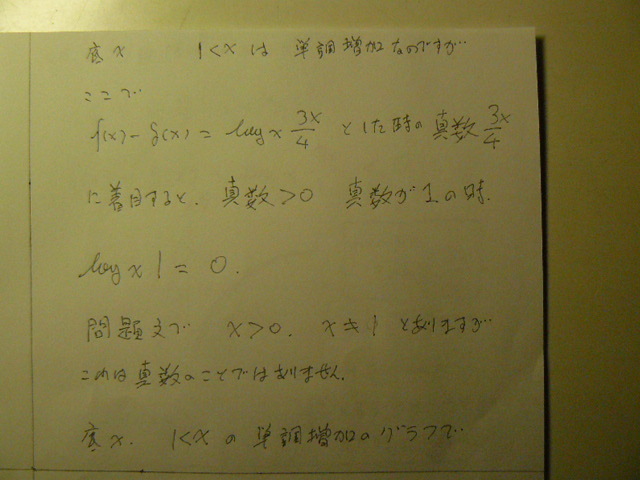 底x 1<xは 単調増加なのですが…
ここで
f(x)-g(x)=log x 3x/4 とした時の真数 3x/4
に着目すると、真数>0 真数が1の時、
log x 1=0.
問題文で x>0, x≠1 とありますが…
これは真数のことではありません。
底x. 1<xの単調増加のグラフで